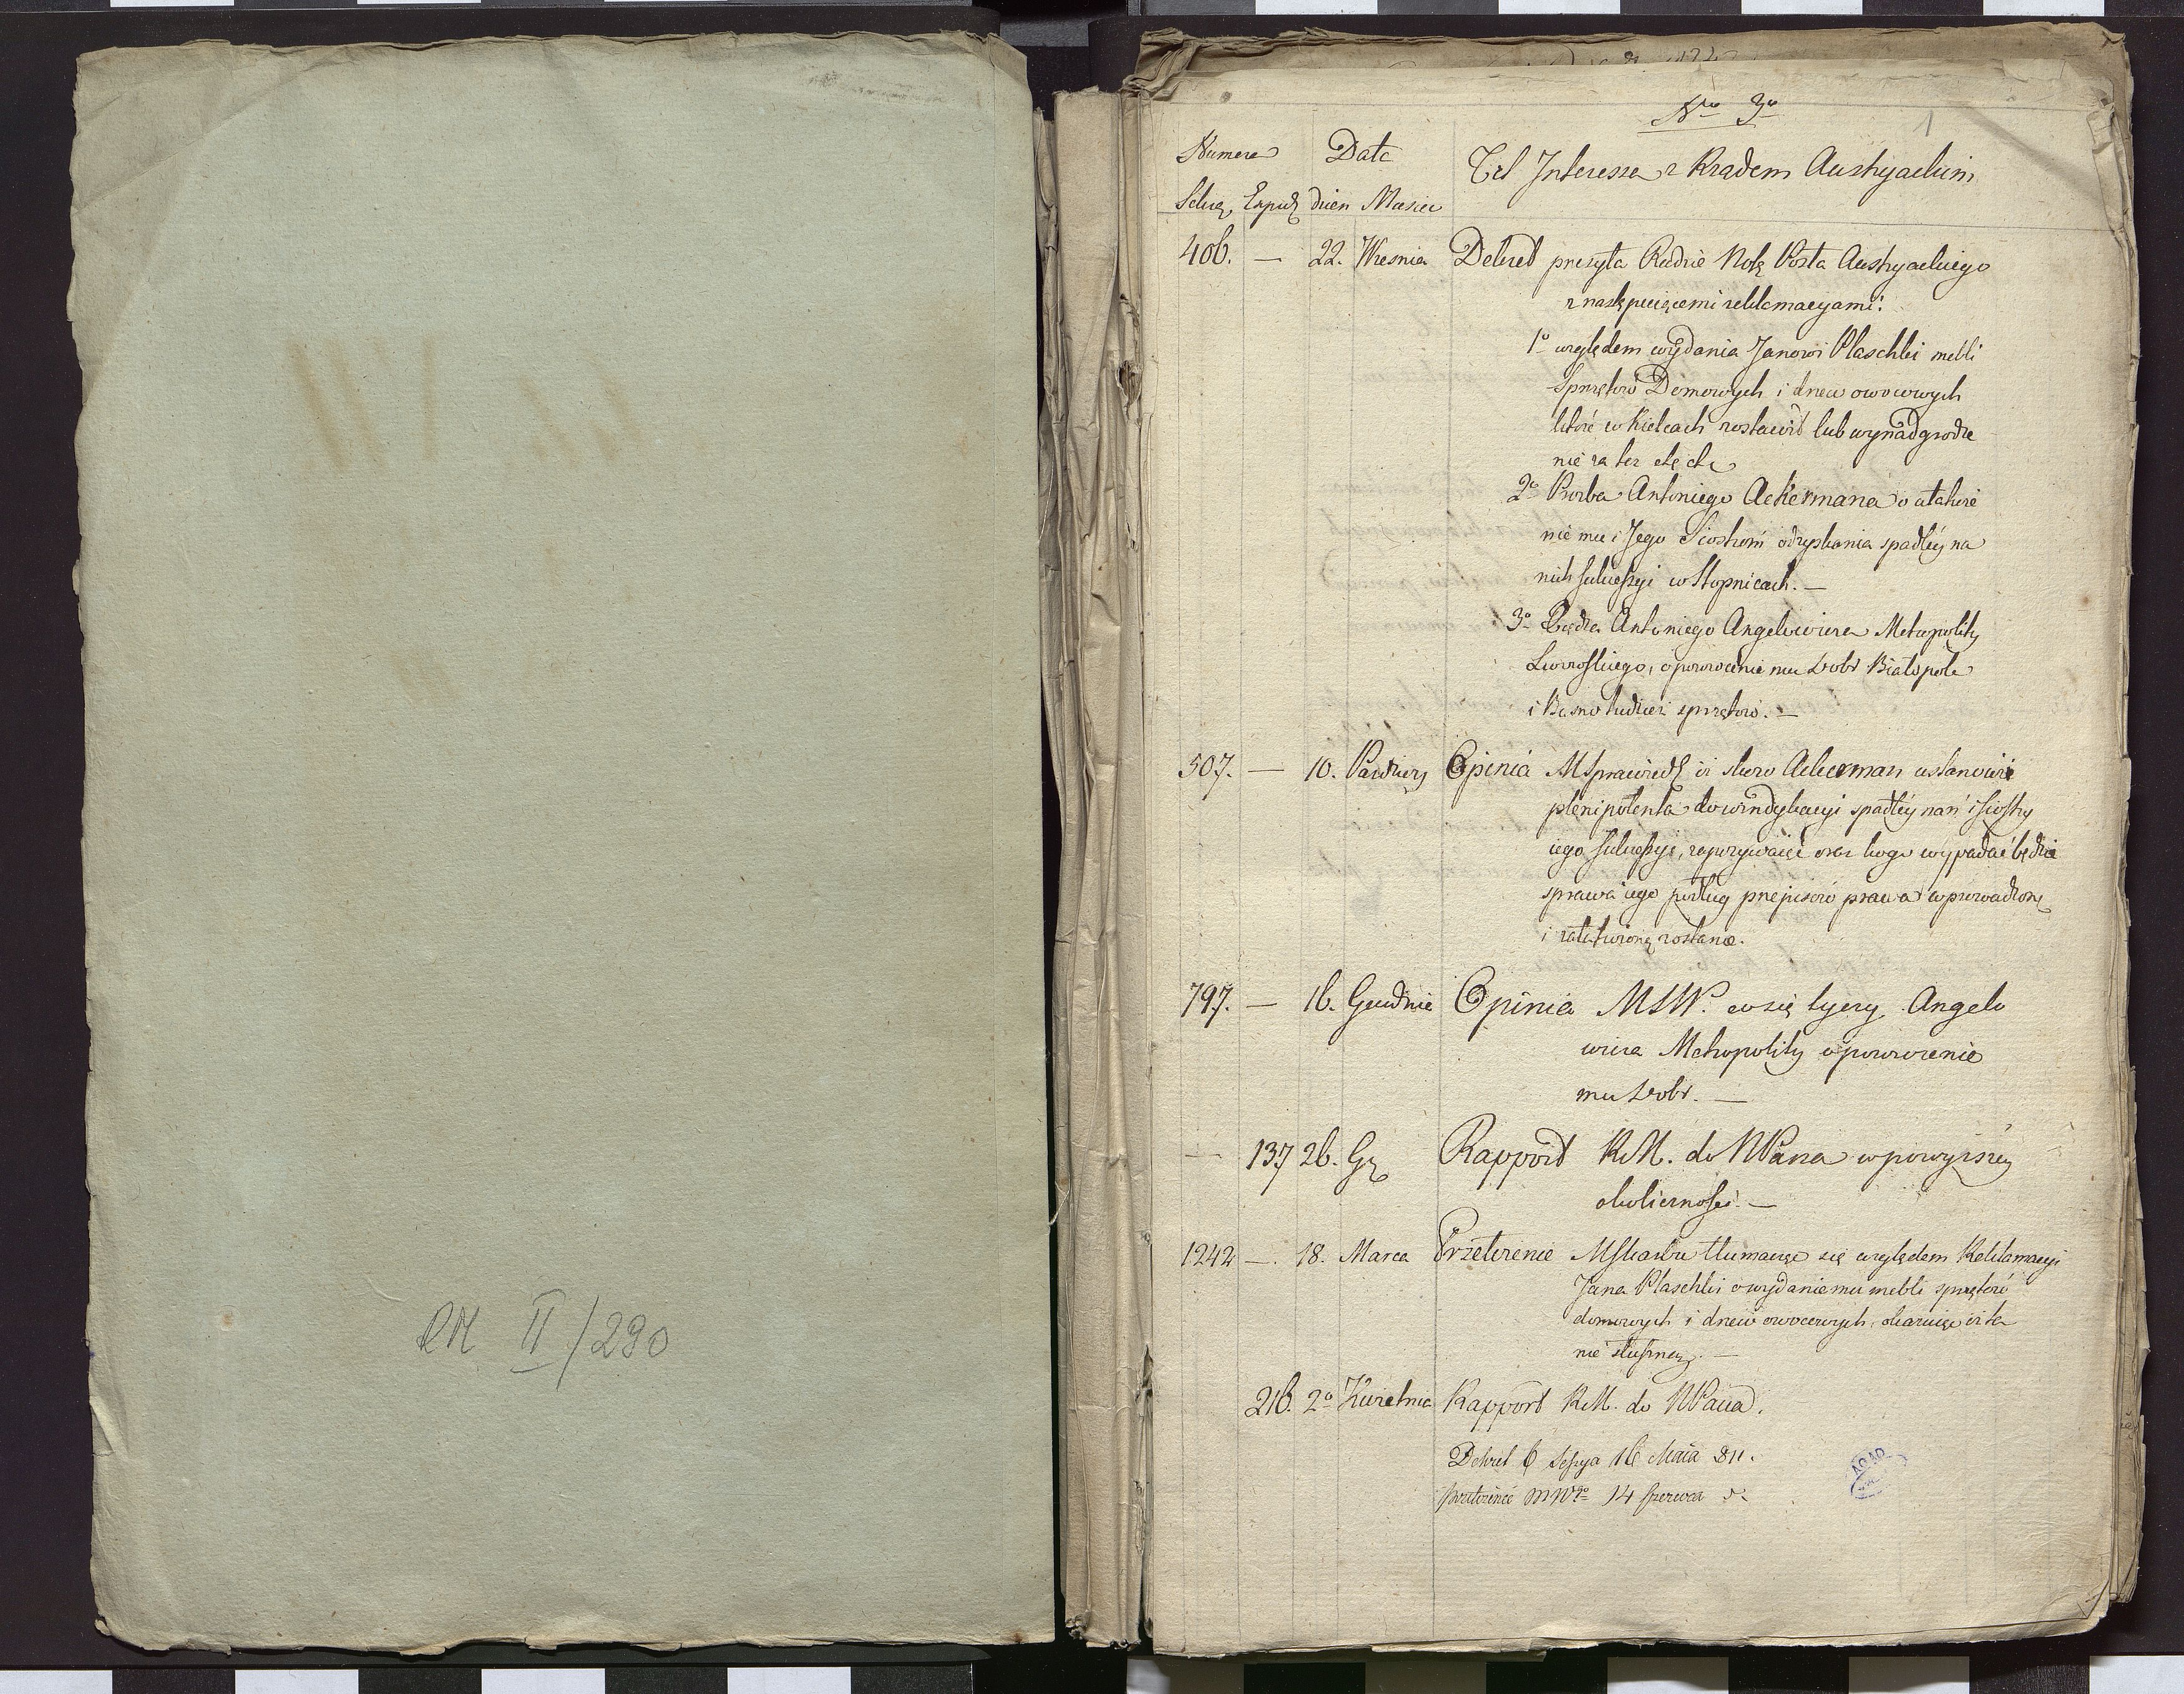 RM II/290
No 3o
1
Numera Data
Tel Interessa z Rządem Austryackim
Sekre. Exped. dzien Miesiec
406. — 22. Wresnia Dekret przesyła Radzie Notę Posła Austryackiego
z następuiącemi reklamacyami:
1o względem wydania Janowi Plaschki mebli
Sprzętow Domowych i drzew owocowych
które w Kielcach zostawił lub wynadgrodze
nie za też
2o Prozba Antoniego Ackermana o ułatwie
nie mu i Jego Siostrom odzyskania spadłey na
nich sukcessyi w Stopnicach. —
3o Ządza Antoniego Angelowicza Metropolity
Lwowskiego, o powrócenie mu Dobr Białopole
i Busno tudzież sprzętow. —
507. — 10. Pazdzier Opinia MSprawiedl iż skoro Ackerman ustanowi
plenipotenta do windykacyi spadłey nań i siostry
iego sukcessyi, zapozywaiąc oraz kogo wypadać będzie
sprawa iego podług przepisow prawa wprowadzoną
i załatwioną zostanie.
797. — 16. Grudnia Opinia MSW. w się tyczy Angelo
wicza Metropolity o powrócenie
mu Dobr. —
— 137 26. Gr Rapport RM. do NPana w powyższey
okoliczności. —
1242 —. 18. Marca Przełożenie MSkarbu tłumacząc się względem Reklamacyi
Jana Plaschki o wydanie mu mebli sprzętow
domowych i drzew owocowych, okazuiąc iż ta
nie słuszną. —
216. 2o Kwietnia Rapport RM. do NPana.
Dekret 6 Sessya 16 Maia 811.
przełożenie MWgo 14 Czerwca
AGAD